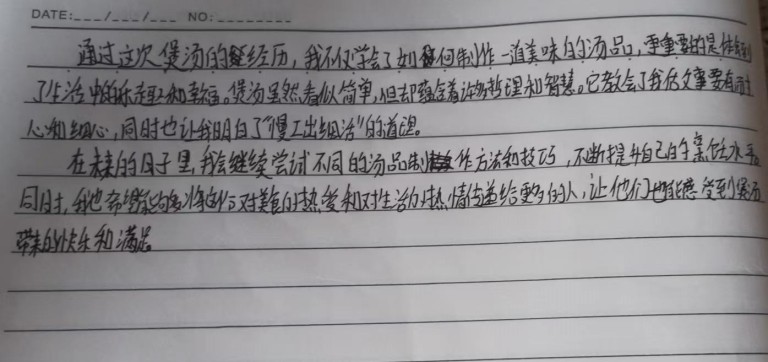 DATE:___/___/___ NO:________
通过这次煲汤的经历，我不仅学会了如何制作一道美味的汤品，更重要的是体会到
了生活中的乐趣和幸福。煲汤虽然看似简单，但却蕴含着许多哲理和智慧。它教会了我做事要有耐
心和细心，同时也让我明白了“慢工出细活”的道理。
在未来的日子里，我会继续尝试不同的汤品制作方法和技巧，不断提升自己的烹饪水平。
同时，我也希望能够将这份对美食的热爱和对生活的热情传递给更多的人，让他们也能感受到煲汤
带来的快乐和满足。